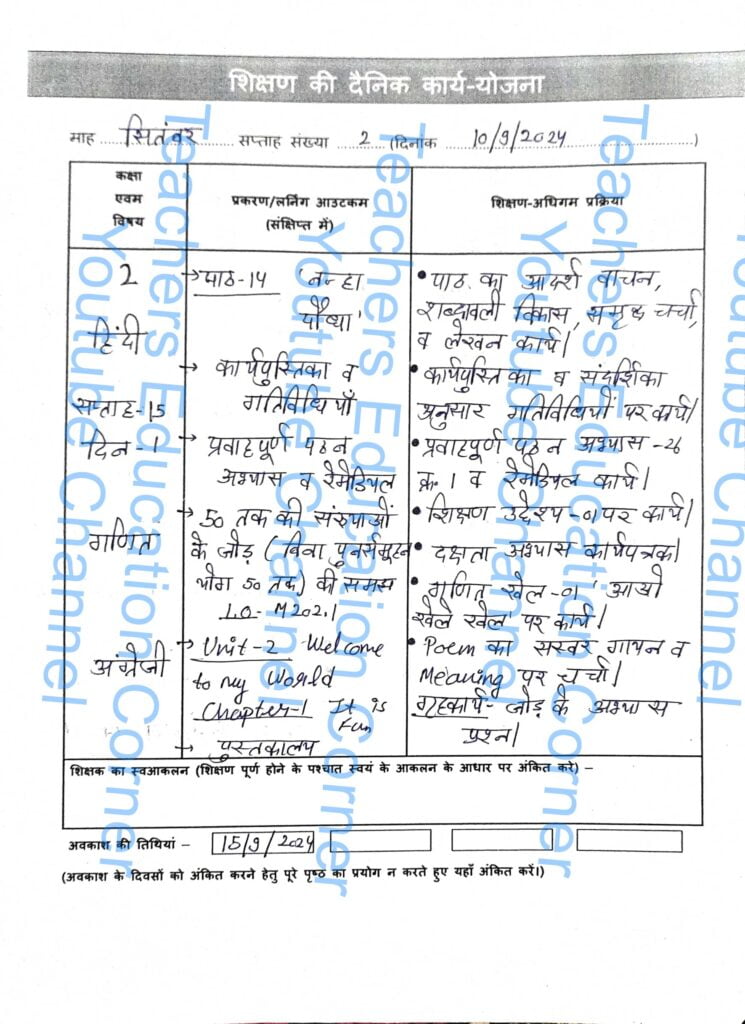 शिक्षण की दैनिक कार्य-योजना
माह सितंबर सप्ताह संख्या 2 (दिनांक 10/9/2024)
कक्षा
एवम
विषय
प्रकरण/लर्निंग आउटकम
(संक्षिप्त में)
शिक्षण-अधिगम प्रक्रिया
2
हिंदी
सप्ताह-15
दिन-1
→ पाठ-14 'नन्हा
पौधा'
→ कार्यपुस्तिका व
गतिविधियाँ
→ प्रवाहपूर्ण पठन
अभ्यास व रेमेडियल
• पाठ का आदर्श वाचन,
शब्दावली विकास, समूह चर्चा,
व लेखन कार्य।
• कार्यपुस्तिका व संदर्शिका
अनुसार गतिविधियों पर कार्य।
• प्रवाहपूर्ण पठन अभ्यास-26
क्र. 1 व रेमेडियल कार्य।
गणित
→ 50 तक की संख्याओं
के जोड़ (बिना पुनर्समूहन
योग 50 तक) की समझ
L.O- M202.1
• शिक्षण उद्देश्य-01 पर कार्य।
• दक्षता अभ्यास कार्यपत्रक।
• गणित खेल-01 'आओ
खेले खेल' पर कार्य।
अंग्रेजी
→ Unit-2 Welcome
to my World
Chapter-1 It is
Fun
→ पुस्तकालय
• Poem का सस्वर गायन व
Meaning पर चर्चा।
गृहकार्य- जोड़ के अभ्यास
प्रश्न।
शिक्षक का स्वआकलन (शिक्षण पूर्ण होने के पश्चात स्वयं के आकलन के आधार पर अंकित करे) –
अवकाश की तिथियां – 15/9/2024
(अवकाश के दिवसों को अंकित करने हेतु पूरे पृष्ठ का प्रयोग न करते हुए यहाँ अंकित करें।)
Teachers Education Corner
Youtube Channel
Teachers Education Corner
Youtube Channel
Teachers Education Corner
Youtube Channel